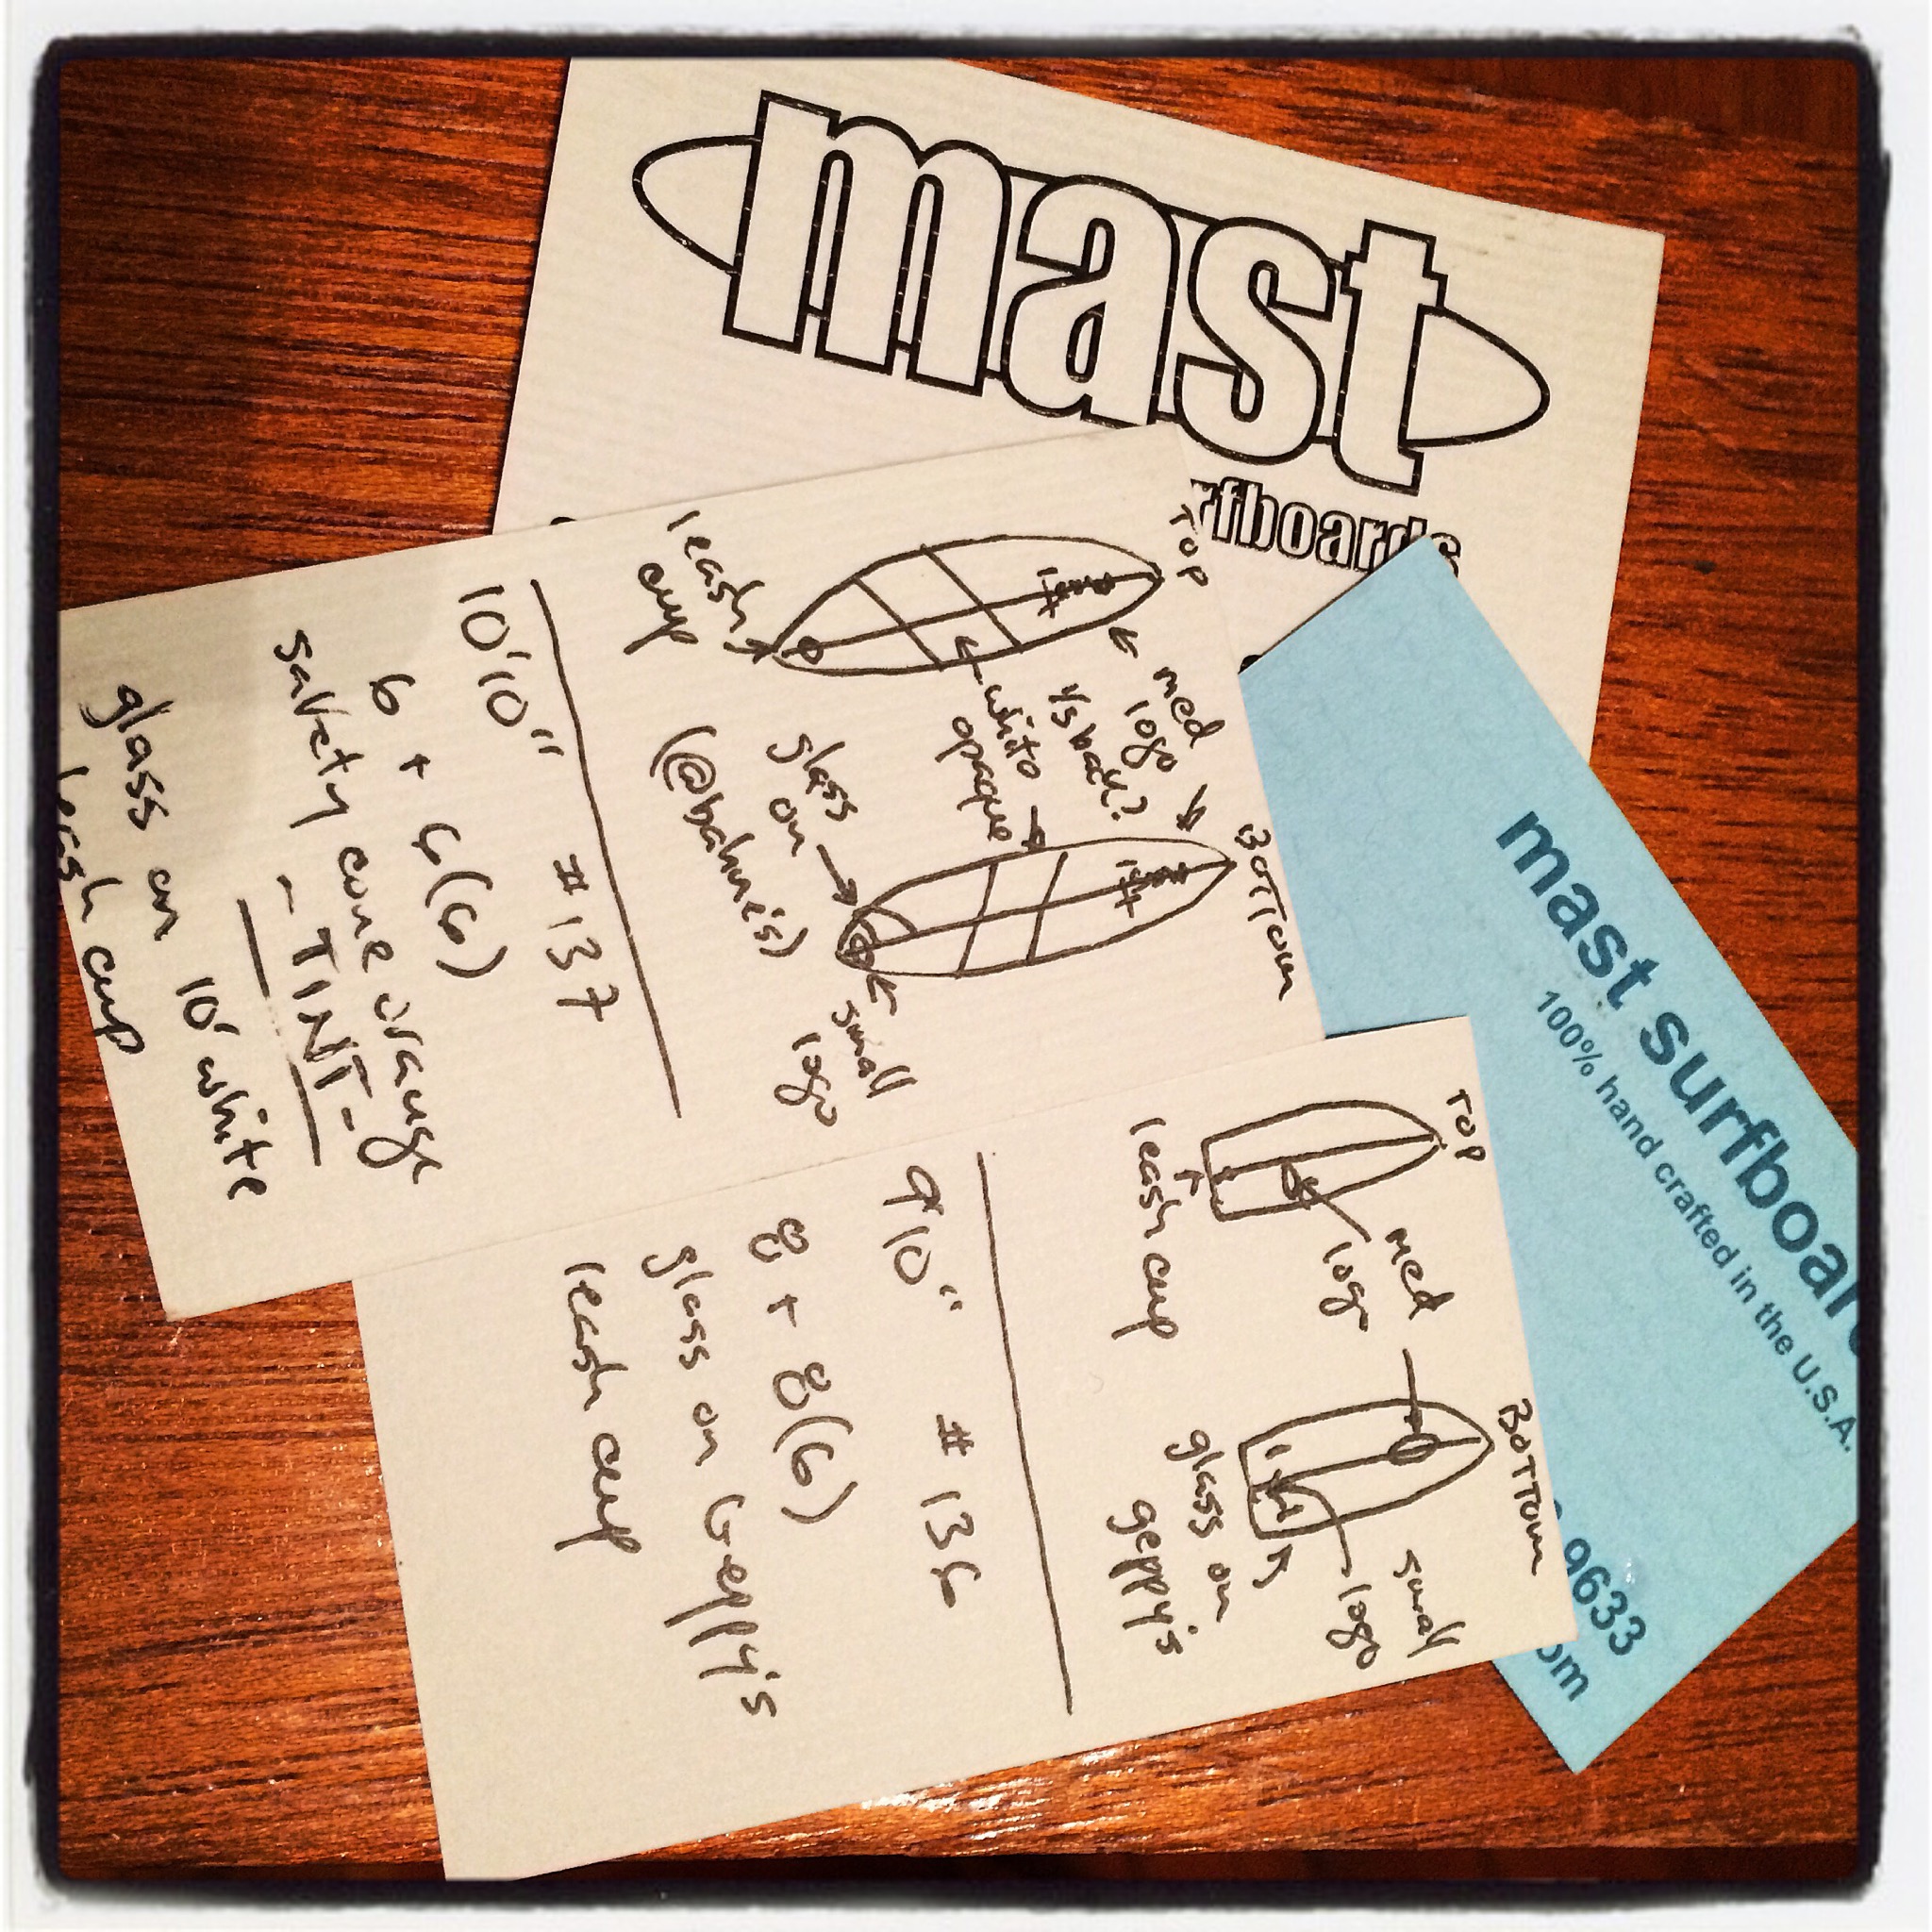 mast
rfboards
TOP
med
logo
1/5 back?
white
opaque
leash
cup
BOTTOM
glass
on
(@bahne's)
small
logo
10'10" #137
6 + 6(6)
safety cone orange
- TINT -
glass on 10' white
leash cup
TOP
med
logo
leash cup
BOTTOM
small
logo
glass on
geppy's
9'10" #136
8 + 8(6)
glass on Geppy's
leash cup
mast surfboar
100% hand crafted in the U.S.A.
9633
om